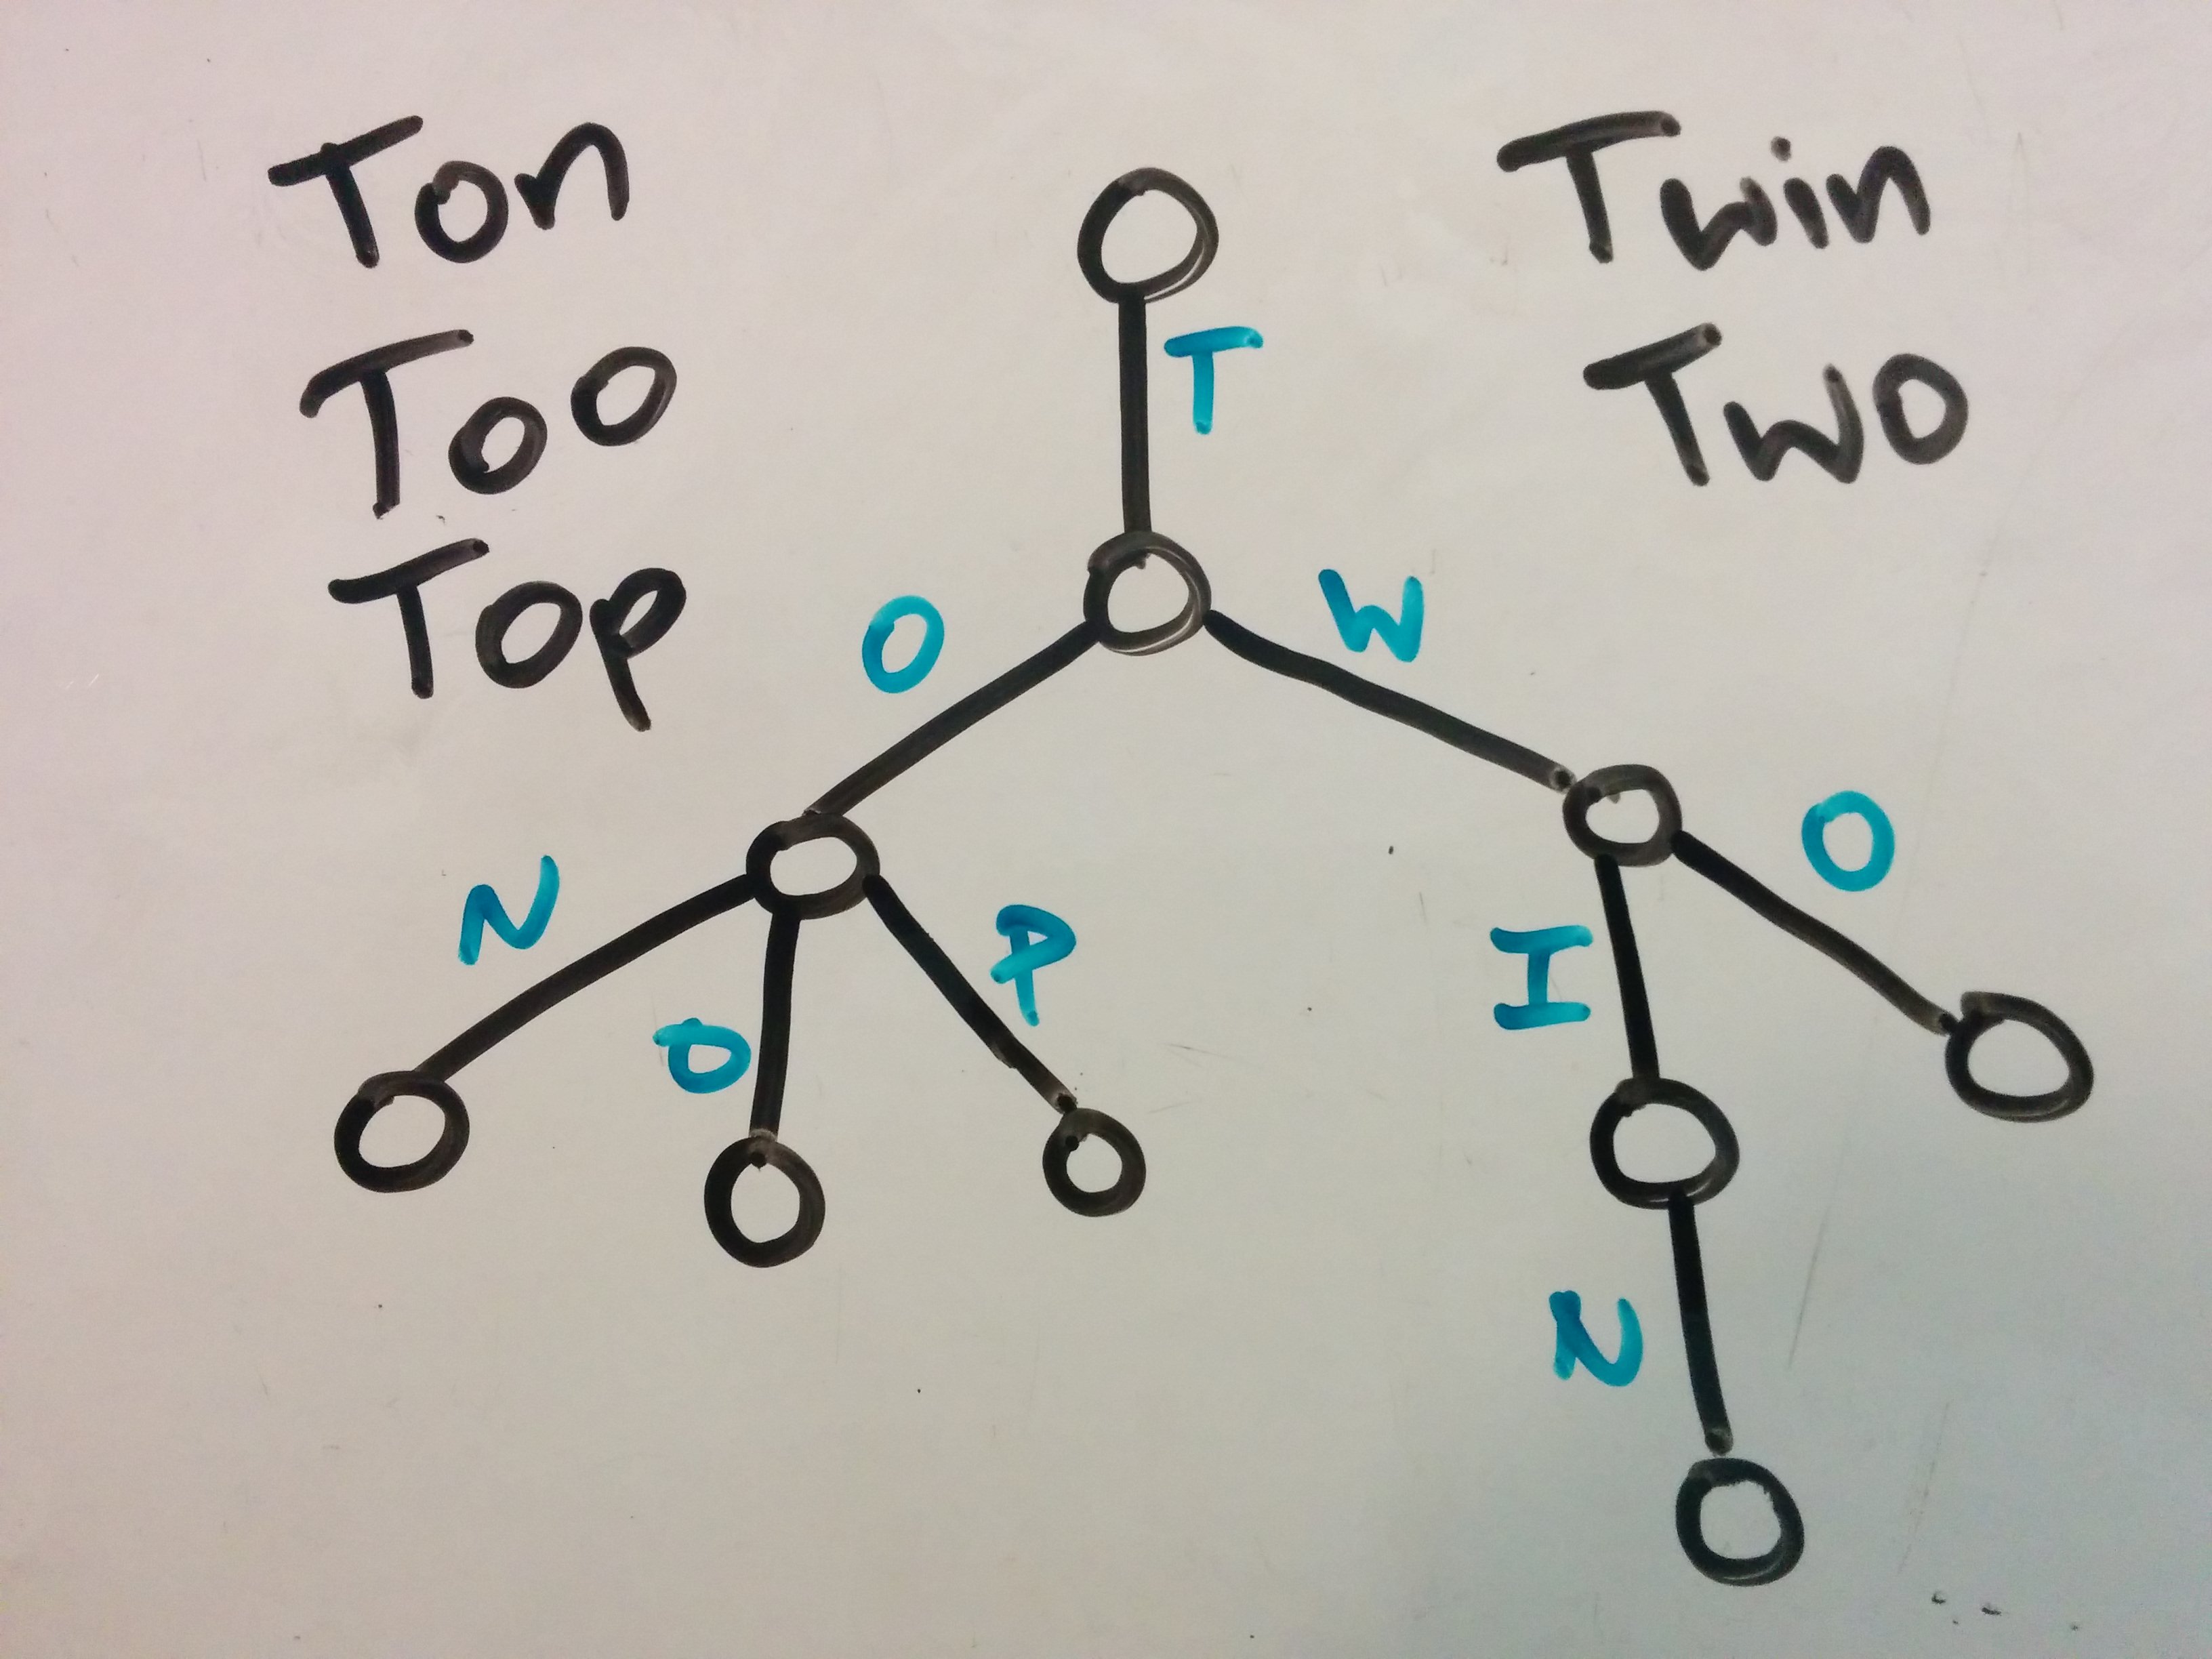 Ton
Too
Top
Twin
Two
T
O
W
N
O
P
I
O
N